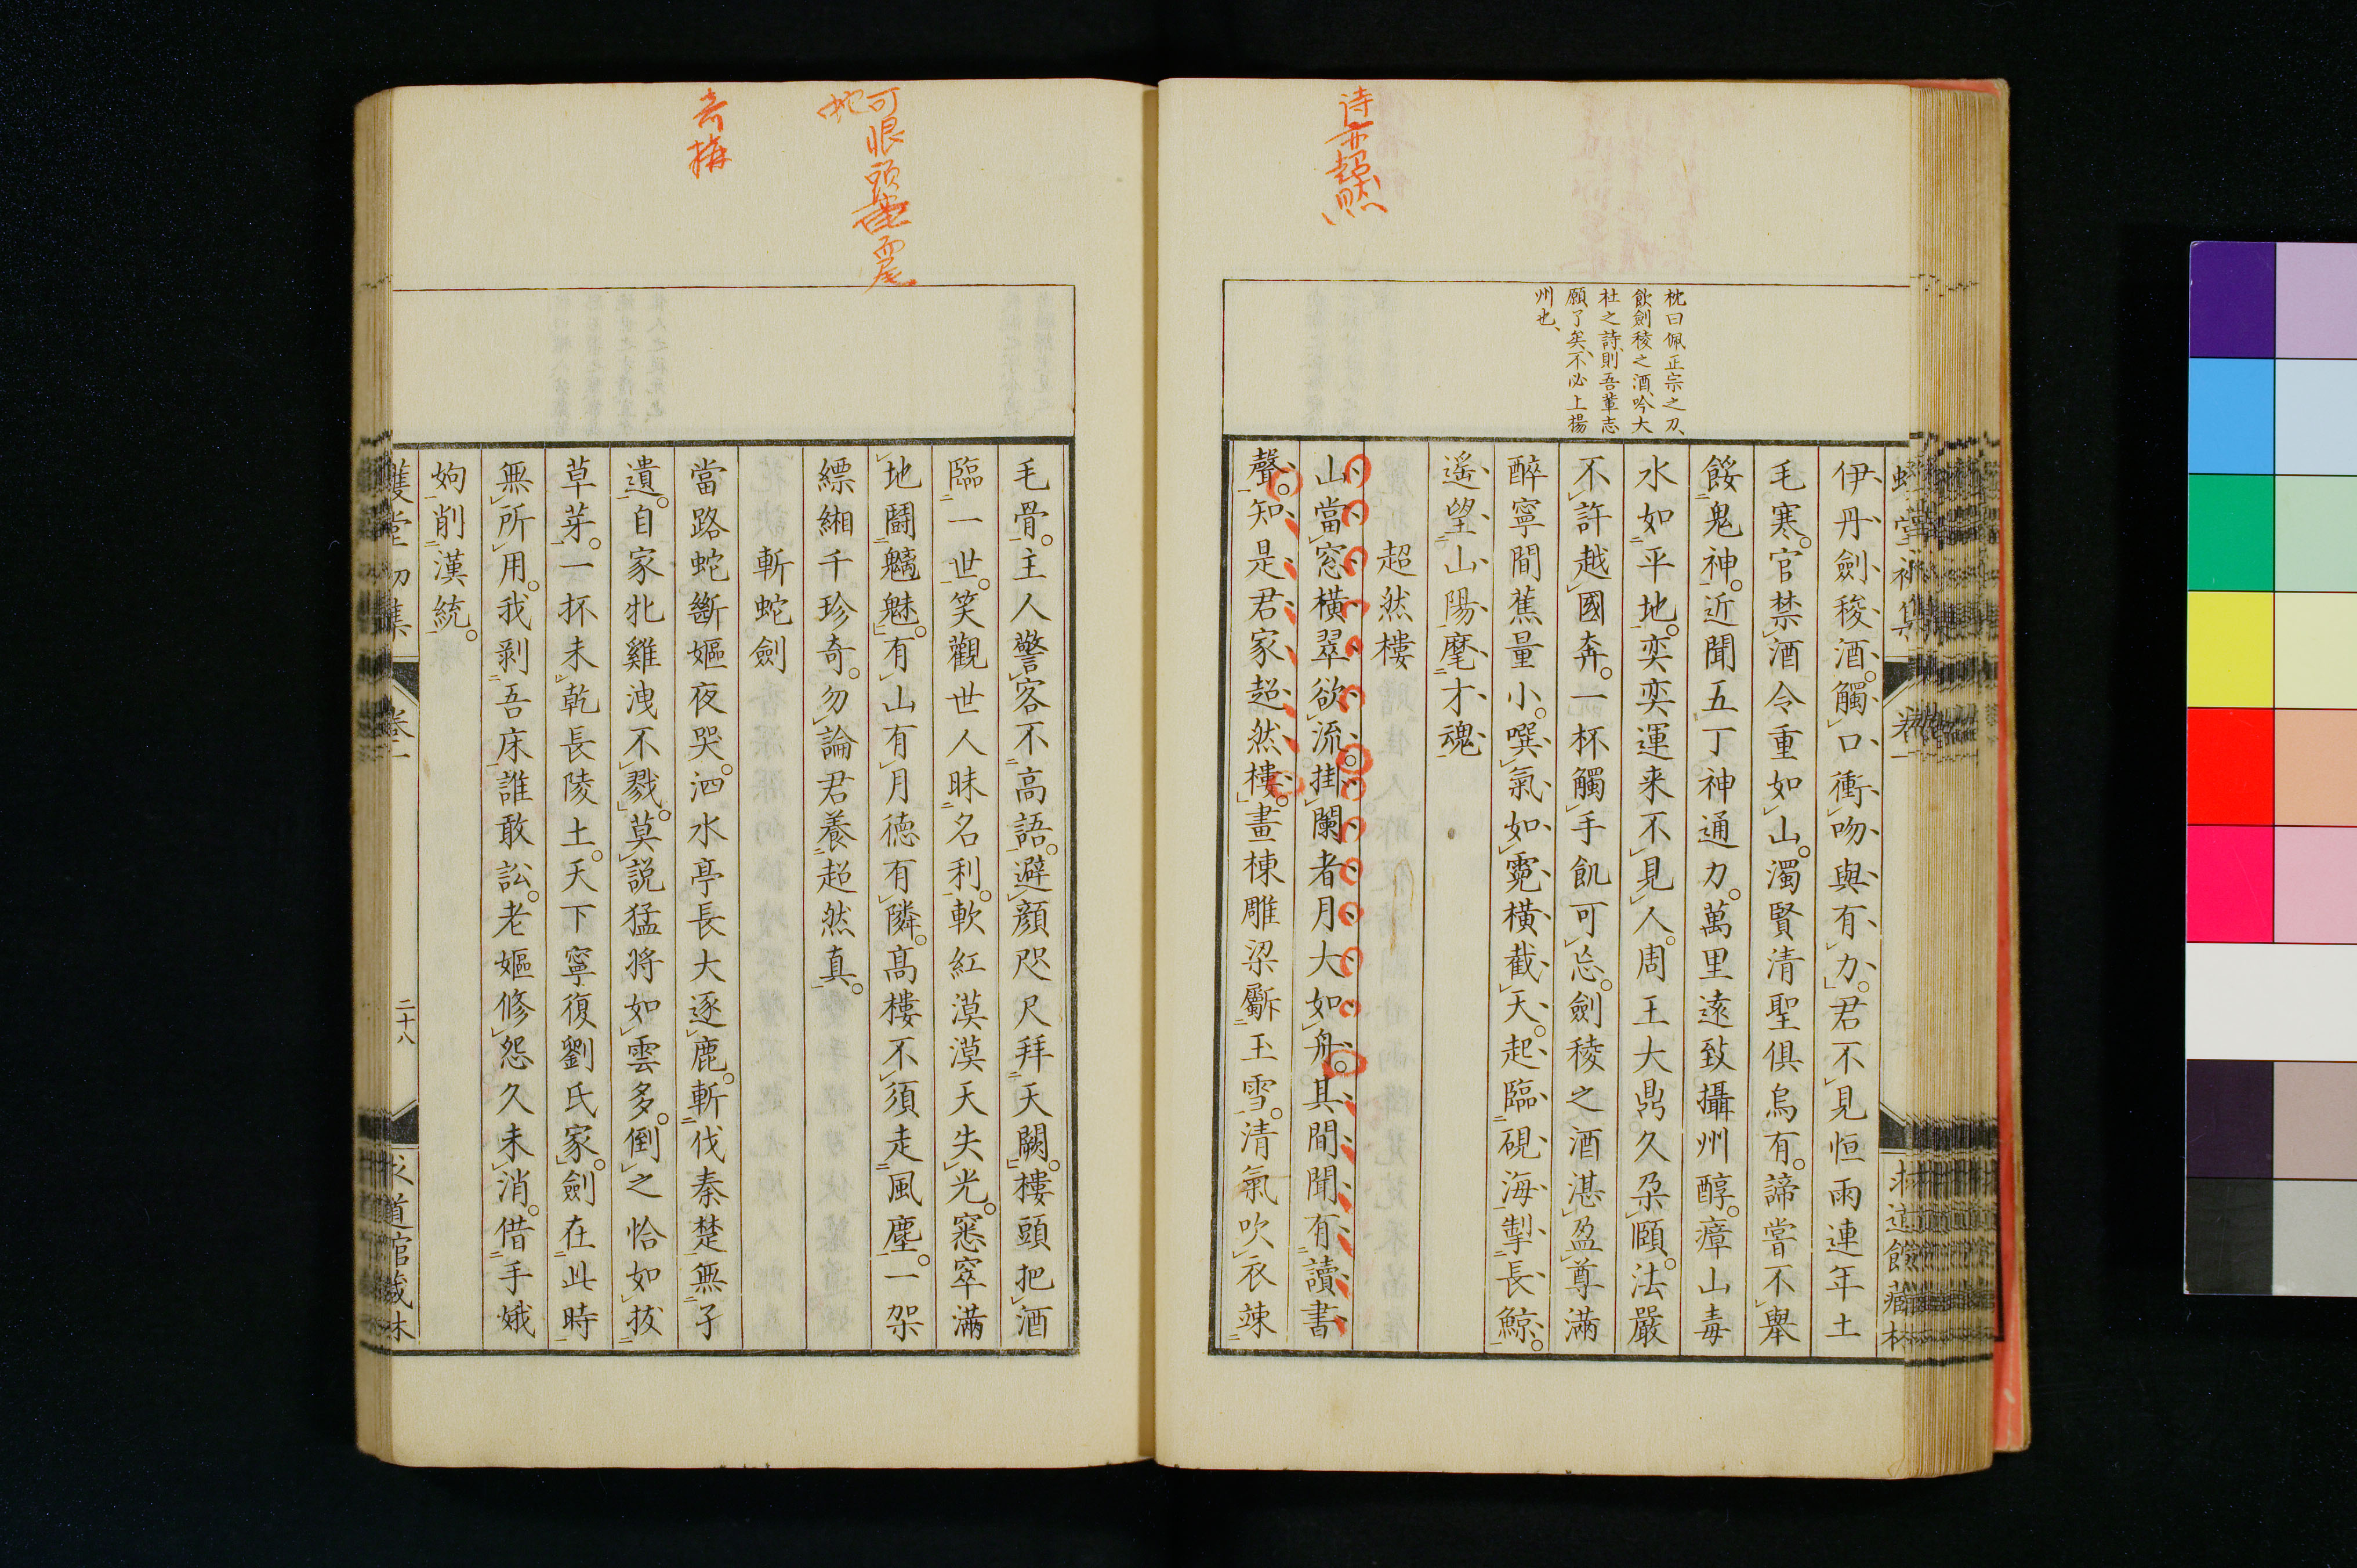 詩亦超然
枕曰佩正宗之刀、
飲劍稜之酒、吟大
杜之詩、則吾輩志
願了矣、不必上揚
州也、
伊丹劍稜酒。觸口衝吻與有力。君不見恒雨連年土
毛寒。官禁酒令重如山。濁賢清聖俱烏有。諦嘗不舉
餒鬼神。近聞五丁神通力。萬里遠致攝州醇。瘴山毒
水如平地。奕奕運来不見人。周王大鼎久朶頤。法嚴
不許越國奔。一杯觸手飢可忘。劍稜之酒湛盈尊滿
醉寧間蕉量小。噀氣如霓橫截天。起臨硯海掣長鯨。
遙望山陽麾才魂
超然樓
山當窓橫翠欲流。掛闌者月大如舟。其間聞有讀書
聲。知是君家超然樓。畫棟雕梁斸玉雪。清氣吹衣竦
可恨頭龍而尾
蛇
毛骨。主人警客不高語。避顔咫尺拜天闕。樓頭把酒
臨一世。笑觀世人昧名利。軟紅漠漠天失光。窸窣滿
地鬪魑魅。有山有月德有隣。高樓不須走風塵。一架
縹緗千珍奇。勿論君養超然真。
斬蛇劍
當路蛇斷嫗夜哭。泗水亭長大逐鹿。斬伐秦楚無子
遺。自家牝雞洩不戮。莫説猛将如雲多。倒之恰如拔
草芽。一抔未乾長陵土。天下寧復劉氏家。劍在此時
無所用。我剥吾床誰敢訟。老嫗修怨久未消。借手娥
姁削漢統。
卷一
二十八